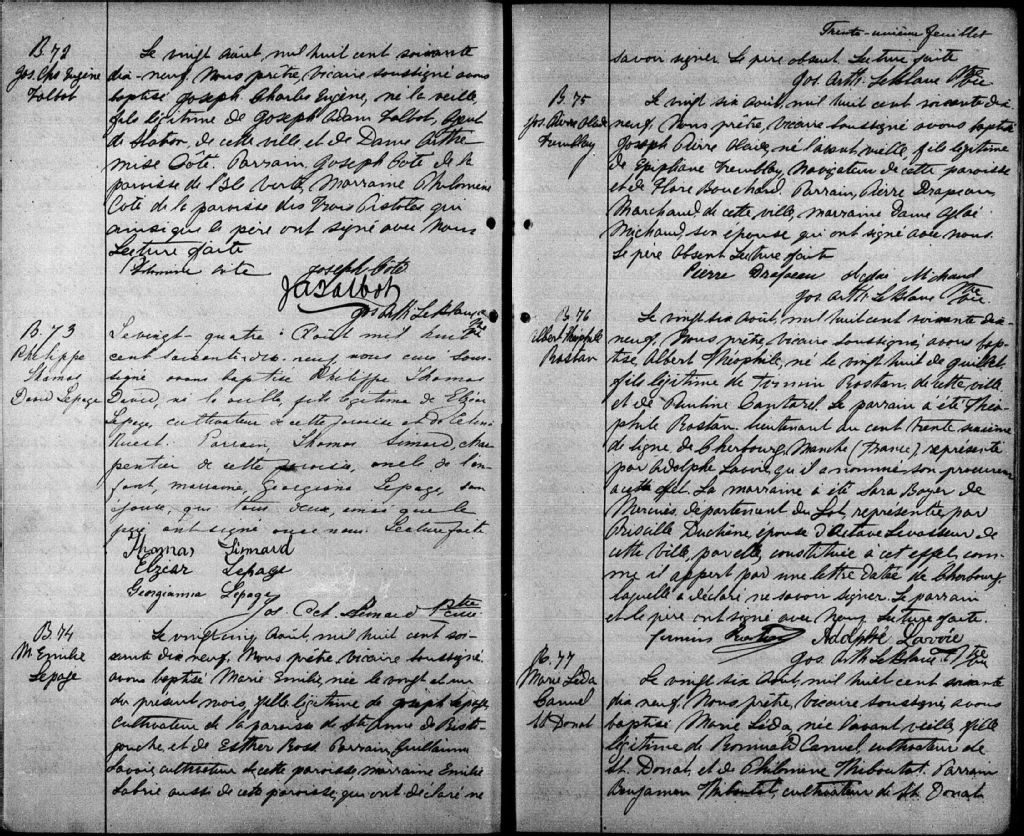 B. 72
Jos. Chs Eugène
Talbot
Le vingt août, mil huit cent soixante
dix-neuf, Nous prêtre, vicaire soussigné avons
baptisé Joseph Charles Eugène, né la veille,
fils légitime de Joseph Adam Talbot, Agent
de Station, de cette ville, et de Dame Arthé-
mise Côté. Parrain, Joseph Côté de la
paroisse de l'Isle verte, Marraine Philomène
Côté de la paroisse des Trois Pistoles qui
ainsi que le père ont signé avec Nous
Lecture faite
Joseph Côté
JATalbot
Jos. Arth. Leblanc, Ptre
B. 73
Philippe
Thomas
David Lepage
Le vingt-quatre Août mil huit
cent soixante-dix-neuf, nous curé sous-
signé avons baptisé Philippe Thomas
David, né la veille, fils légitime de Elzéar
Lepage, cultivateur de cette paroisse et de
Ruest. Parrain, Thomas Simard, char-
pentier de cette paroisse, oncle de l'en-
fant, marraine, Georgiana Lepage, son
épouse, qui tous deux, ainsi que le
père ont signé avec nous. Lecture faite
Thomas Simard
Elzéar Lepage
Georgianna Lepage
Jos. Oct. Simard Ptre curé
B. 74
M. Emilie
Lepage
Le vingt-cinq Août, mil huit cent soi-
xante dix neuf, Nous prêtre vicaire soussigné
avons baptisé Marie Emilie, née le vingt et un
du présent mois, fille légitime de Joseph Lepage,
Cultivateur de la paroisse de Ste Anne de Risti-
gouche, et de Esther Ross. Parrain, Guillaume
Lavoie, cultivateur de cette paroisse, marraine Emilie
Labrie aussi de cette paroisse, qui ont déclaré ne
Trente-unième feuillet
savoir signer. Le père absent. Lecture faite
Jos. Arth. Leblanc Ptre Vic.
B. 75
Jos. Pierre
Tremblay
Le vingt six août, mil huit cent soixante dix
neuf, Nous prêtre, vicaire soussigné avons baptisé
Joseph Pierre, né l'avant veille, fils légitime
de Epiphane Tremblay, Navigateur de cette paroisse
et de Flore Bouchard. Parrain, Pierre Drapeau,
Marchand, de cette ville, marraine Dame Aglaé
Michaud, son épouse qui ont signé avec nous.
Le père Absent Lecture faite
Pierre Drapeau Michaud
Jos. Arth. Leblanc Ptre Vic.
B. 76
Albert Théophile
Rostan
Le vingt six août, mil huit cent soixante dix-
neuf, Nous prêtre, vicaire soussigné, avons bap-
tisé Albert Théophile, né le vingt huit de juillet
fils légitime de Firmin Rostan, de cette ville
et de Pauline Cantarel. Le parrain a été Théo-
phile Rostan lieutenant au cent trente sixième
de ligne de Cherbourg, Manche (France), représenté
par Adolphe Lavoie, qu'il a nommé son procureur
à cette effet. La marraine a été Sara Boyer de
Mercuès, département du Lot, représentée par
Priscille Duchêne, épouse d'Octave Levasseur de
cette ville, par elle, constituée à cet effet, com-
me il appert par une lettre datée de Cherbourg,
laquelle a déclaré ne savoir signer. Le parrain
et le père ont signé avec Nous. Lecture faite.
Firmin Rostan Adolphe Lavoie
Jos. Arth. Leblanc Ptre Vic.
B. 77
Marie Léda
Canuel
St Donat
Le vingt six Août, mil huit cent soixante
dix neuf, Nous prêtre, vicaire soussigné, avons
baptisé Marie Léda, née l'avant veille, fille
légitime de Romuald Canuel, cultivateur de
St. Donat, et de Philomène Thiboutot. Parrain
Benjamin Thiboutot, cultivateur de St. Donat